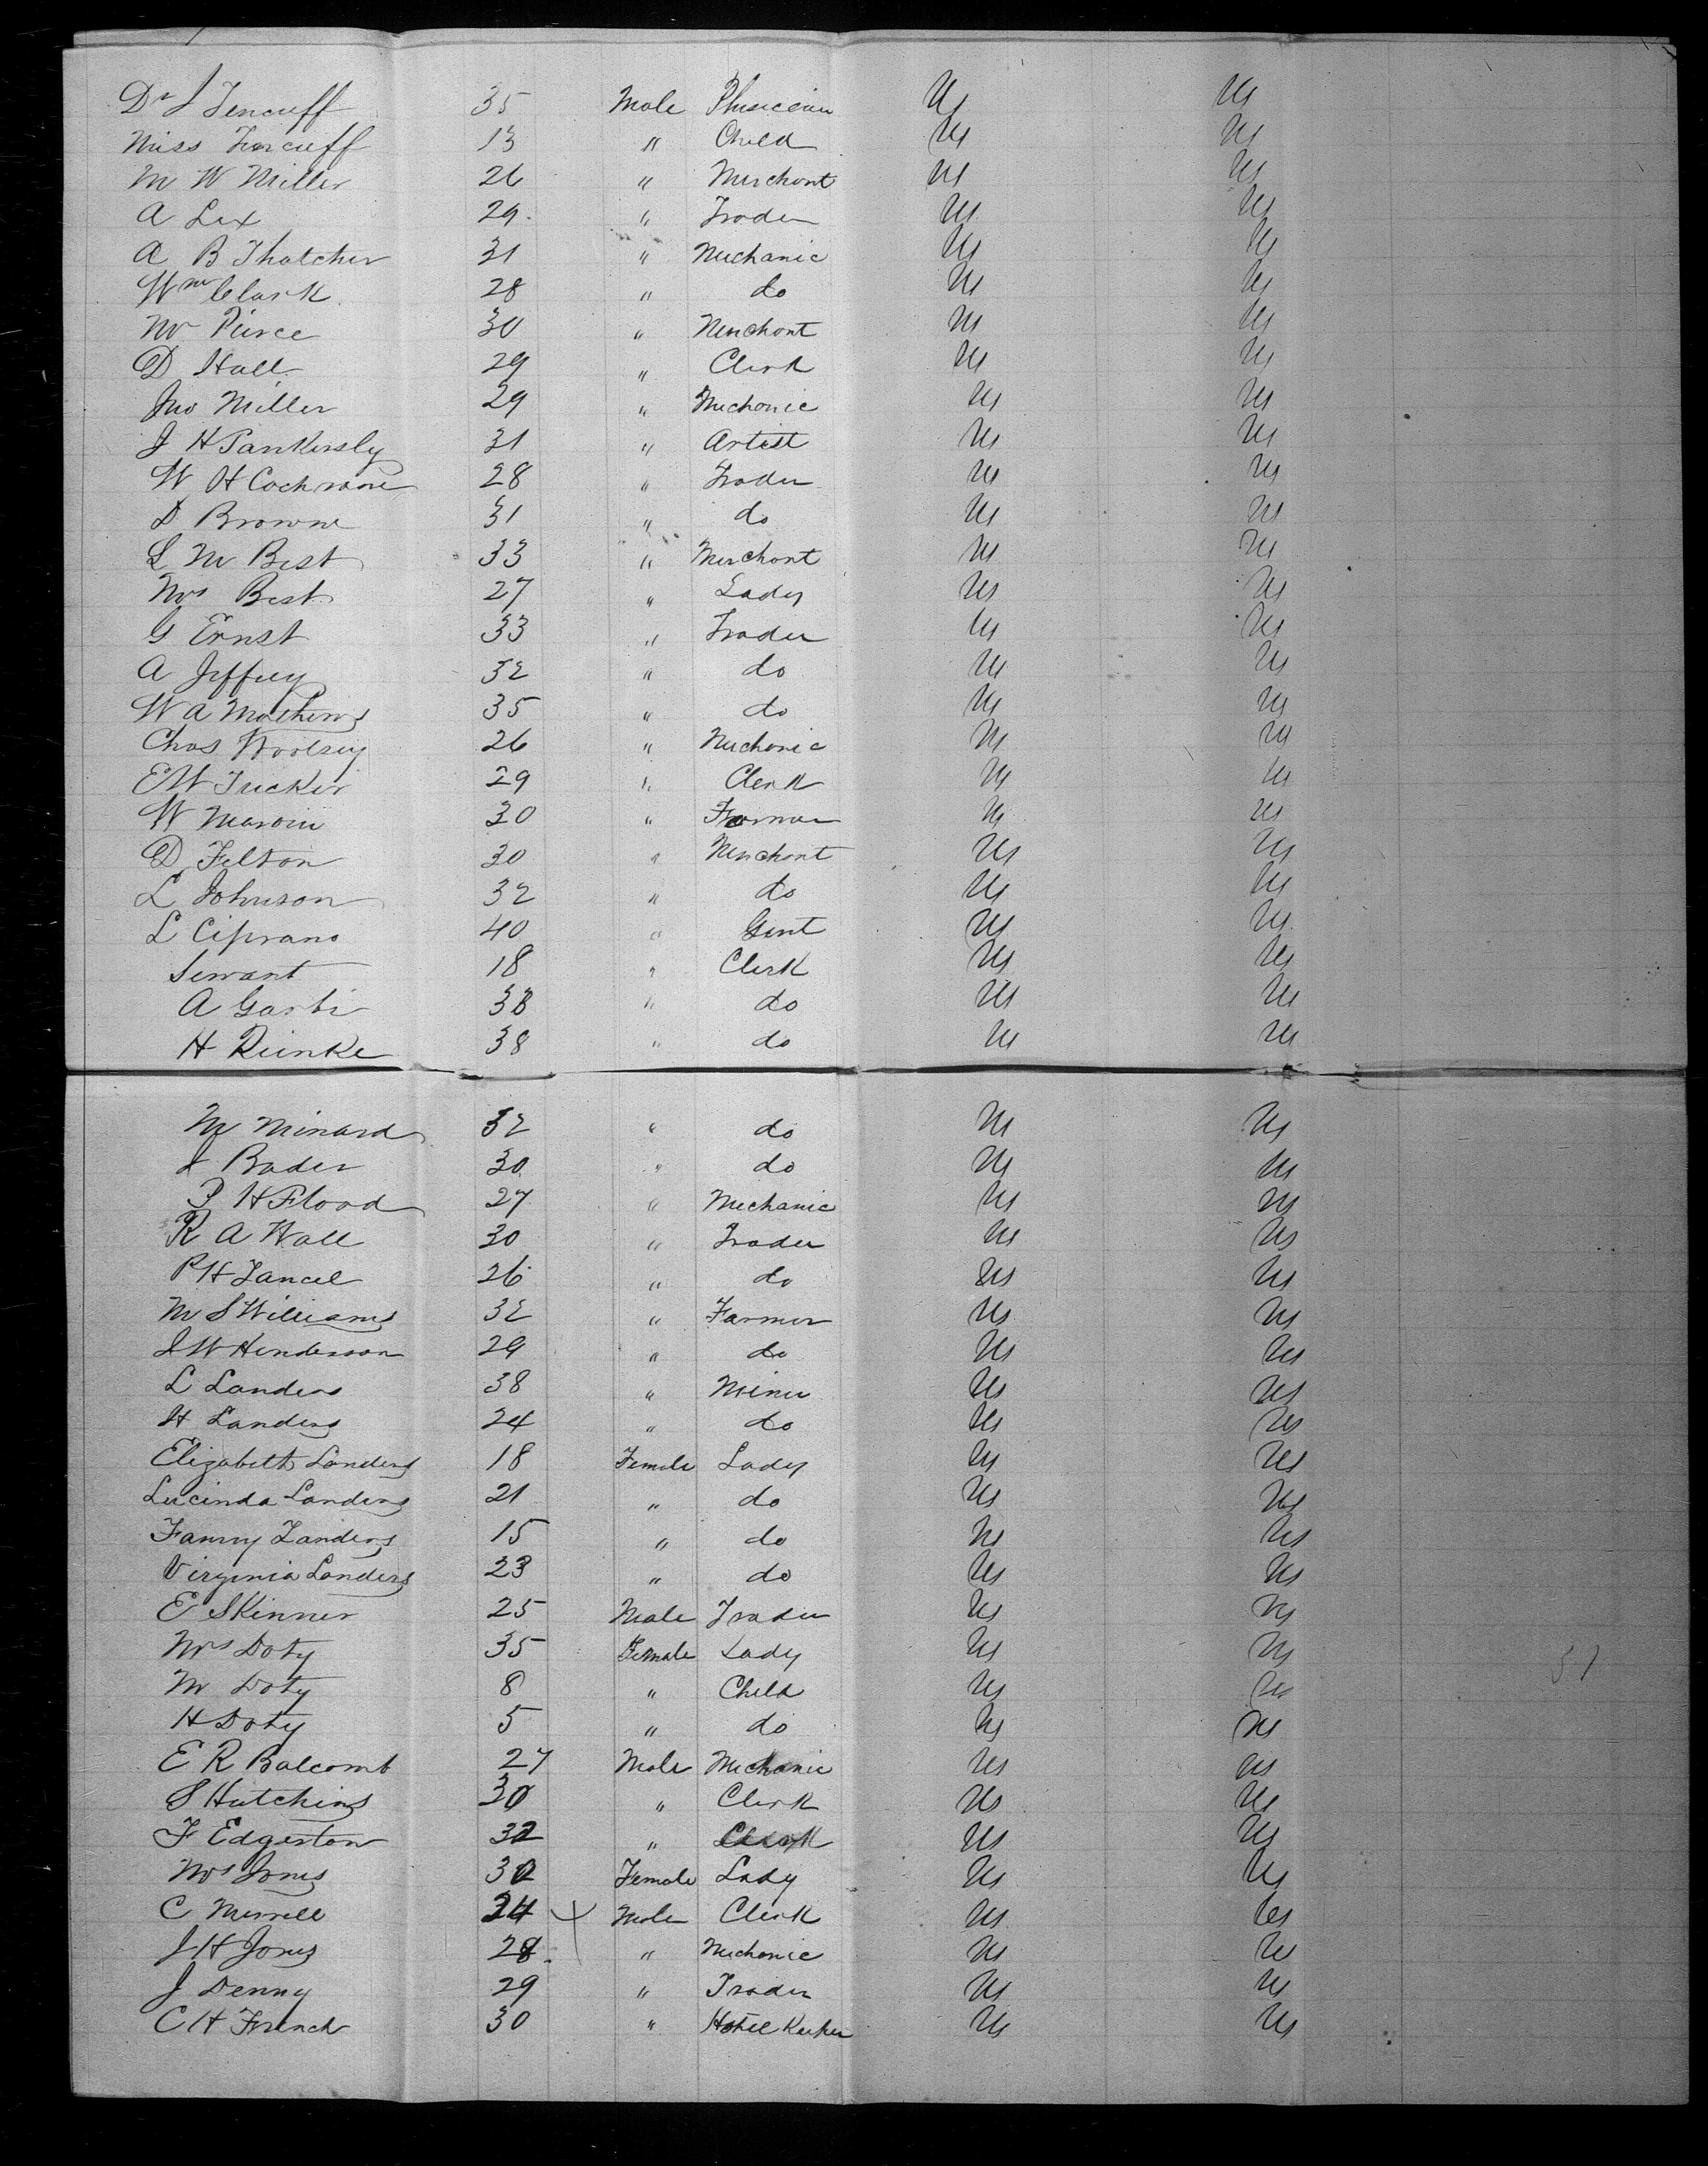 Dr J Tencuff 35 Male Physician Us Us
Miss Tencuff 13 " Child Us Us
M W Miller 26 " Merchant Us Us
A Lex 29 " Trader Us Us
A B Thatcher 31 " Mechanic Us Us
Wm Clark 28 " do Us Us
Mr Pierce 30 " Merchant Us Us
D Hall 29 " Clerk Us Us
Jno Miller 29 " Mechanic Us Us
J H Tankersly 31 " Artist Us Us
W H Cochrane 28 " Trader Us Us
D Browne 31 " do Us Us
L M Best 33 " Merchant Us Us
Mrs Best 27 " Lady Us Us
G Ernst 33 " Trader Us Us
A Jeffrey 32 " do Us Us
W A Mathews 35 " do Us Us
Chas Woolsey 26 " Mechanic Us Us
E W Tucker 29 " Clerk Us Us
W 30 " Farmer Us Us
D Felton 30 " Merchant Us Us
L Johnson 32 " do Us Us
L Ciprano 40 " Gent Us Us
Servant 18 " Clerk Us Us
A 38 " do Us Us
H Reinke 38 " do Us Us
M Minard 32 " do Us Us
Bader 30 " do Us Us
P H Flood 27 " Mechanic Us Us
R A Hall 30 " Trader Us Us
P H 26 " do Us Us
M S Williams 32 " Farmer Us Us
J W Henderson 29 " do Us Us
L Landers 38 " Miner Us Us
H Landers 24 " do Us Us
Elizabeth Landers 18 Female Lady Us Us
Lucinda Landers 21 " do Us Us
Fanny Landers 15 " do Us Us
Virginia Landers 23 " do Us Us
E Skinner 25 Male Trader Us Us
Mrs Doty 35 Female Lady Us Us
M Doty 8 " Child Us Us
H Doty 5 " do Us Us
E R Balcomb 27 Male Mechanic Us Us
S Hutchins 30 " Clerk Us Us
F Edgerton 32 " Clerk Us Us
Mrs Jones 30 Female Lady Us Us
C Merrell 24 Male Clerk Us Us
J H Jones 28 " Mechanic Us Us
J Denny 29 " Trader Us Us
C H French 30 " Hotel Keeper Us Us
51